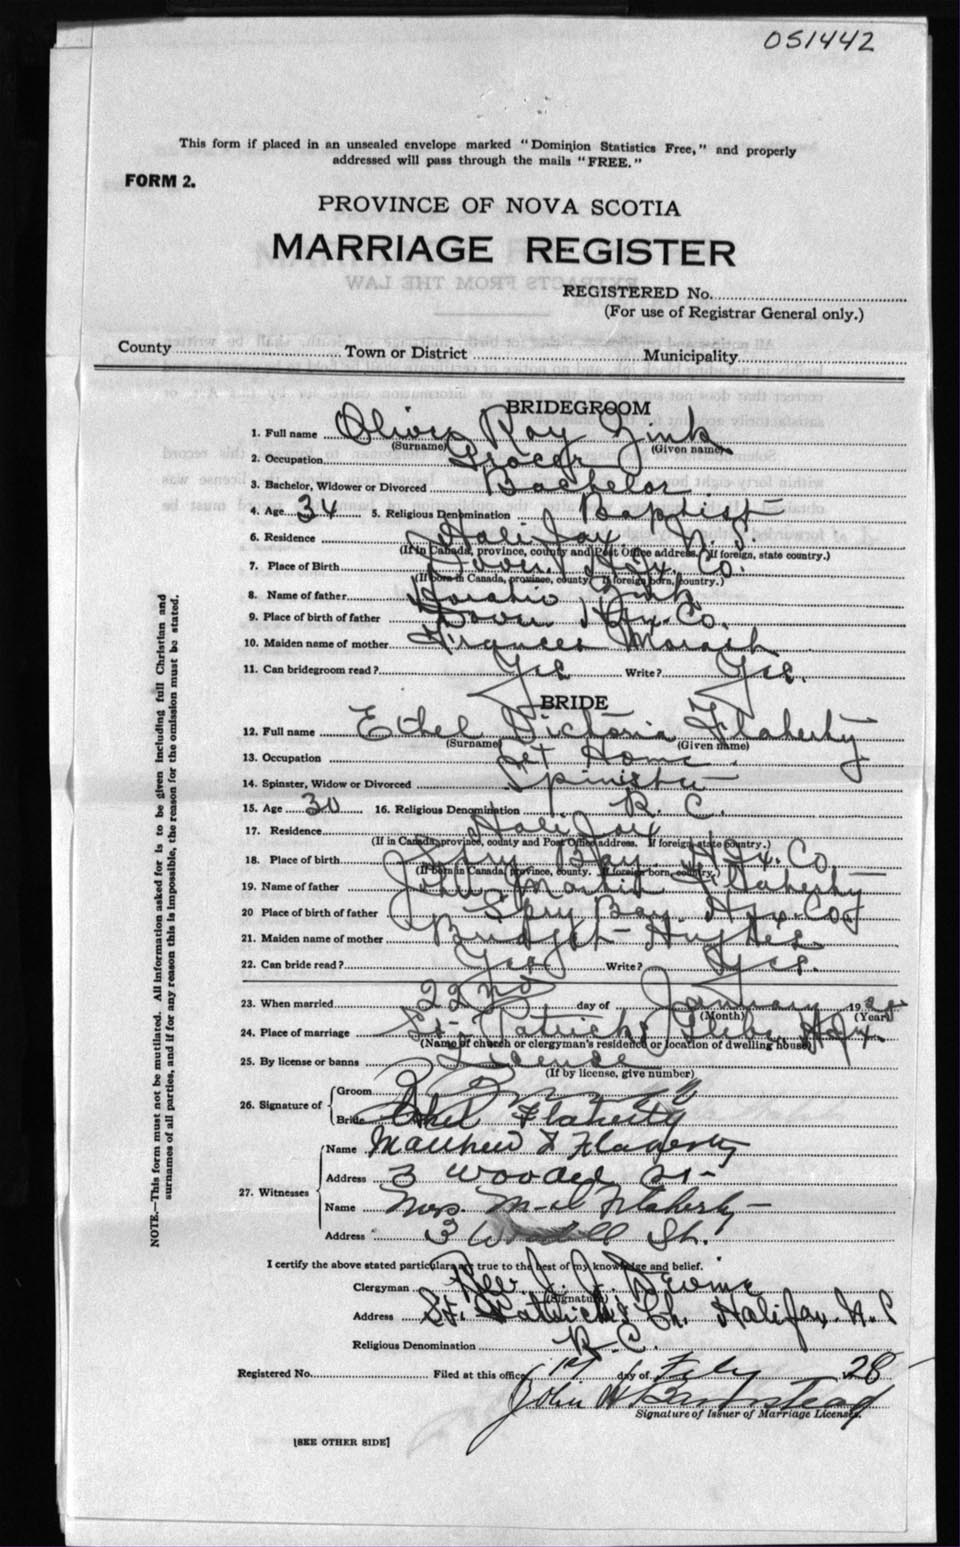 051442
This form if placed in an unsealed envelope marked "Dominion Statistics Free," and properly
addressed will pass through the mails "FREE."
FORM 2.
PROVINCE OF NOVA SCOTIA
MARRIAGE REGISTER
REGISTERED No.
(For use of Registrar General only.)
County Town or District Municipality
BRIDEGROOM
1. Full name Oliver Roy Zink
(Surname) (Given name)
2. Occupation Grocer
3. Bachelor, Widower or Divorced Bachelor
4. Age 34 5. Religious Denomination Baptist
6. Residence Halifax N.S.
(If in Canada, province, county and Post Office address. If foreign, state country.)
7. Place of Birth Dover Hfx. Co.
(If born in Canada, province, county. If foreign born, country.)
8. Name of father Horatio Zink
9. Place of birth of father Dover Hfx. Co.
10. Maiden name of mother Frances Morash
11. Can bridegroom read? Yes Write? Yes.
BRIDE
12. Full name Ethel Victoria Flaherty
(Surname) (Given name)
13. Occupation At Home
14. Spinster, Widow or Divorced Spinster
15. Age 30 16. Religious Denomination R. C.
17. Residence Halifax
(If in Canada, province, county and Post Office address. If foreign state country.)
18. Place of birth Spry Bay. Hfx. Co.
(If born in Canada, province, county. If foreign born, country.)
19. Name of father John Martin Flaherty
20 Place of birth of father Spry Bay. Hfx. Co.
21. Maiden name of mother Bridget Hughes
22. Can bride read? Yes Write? Yes.
23. When married 22nd day of January 19
(Month) (Year)
24. Place of marriage St. Patrick's Glebe Hfx.
(Name of church or clergyman's residence or location of dwelling house)
25. By license or banns License
(If by license, give number)
26. Signature of Groom
Bride Ethel Flaherty
27. Witnesses Name Matthew J Flaherty
Address 3 St
Name Mrs. M. J. Flaherty
Address 3 St.
I certify the above stated particulars are true to the best of my knowledge and belief.
Clergyman Rev J. J.
(Signature)
Address St. Patrick's Ch. Halifax N.S
Religious Denomination R. C.
Registered No. Filed at this office 1st day of Feby 28
John W
Signature of Issuer of Marriage Licenses.
[SEE OTHER SIDE]
NOTE.—This form must not be mutilated. All information asked for is to be given including full Christian and
surnames of all parties, and if for any reason this is impossible, the reason for the omission must be stated.